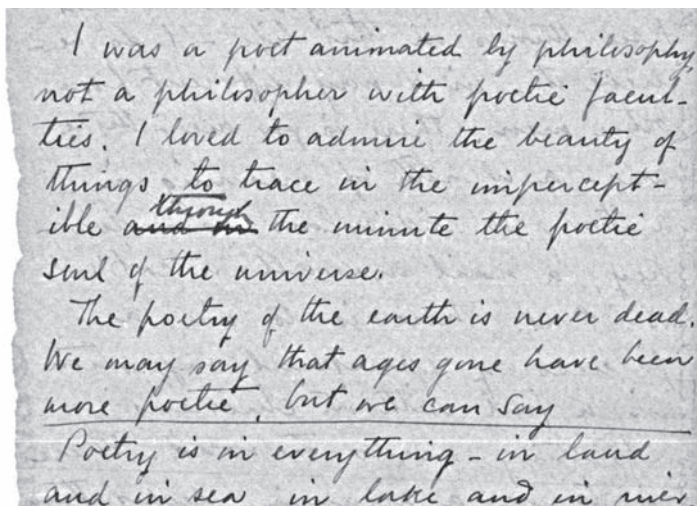 I was a poet animated by philosophy
not a philosopher with poetic facul-
ties. I loved to admire the beauty of
things to trace in the impercept-
through
ible and in the minute the poetic
soul of the universe.
The poetry of the earth is never dead.
We may say that ages gone have been
more poetic, but we can say
Poetry is in everything - in land
and in sea in lake and in river